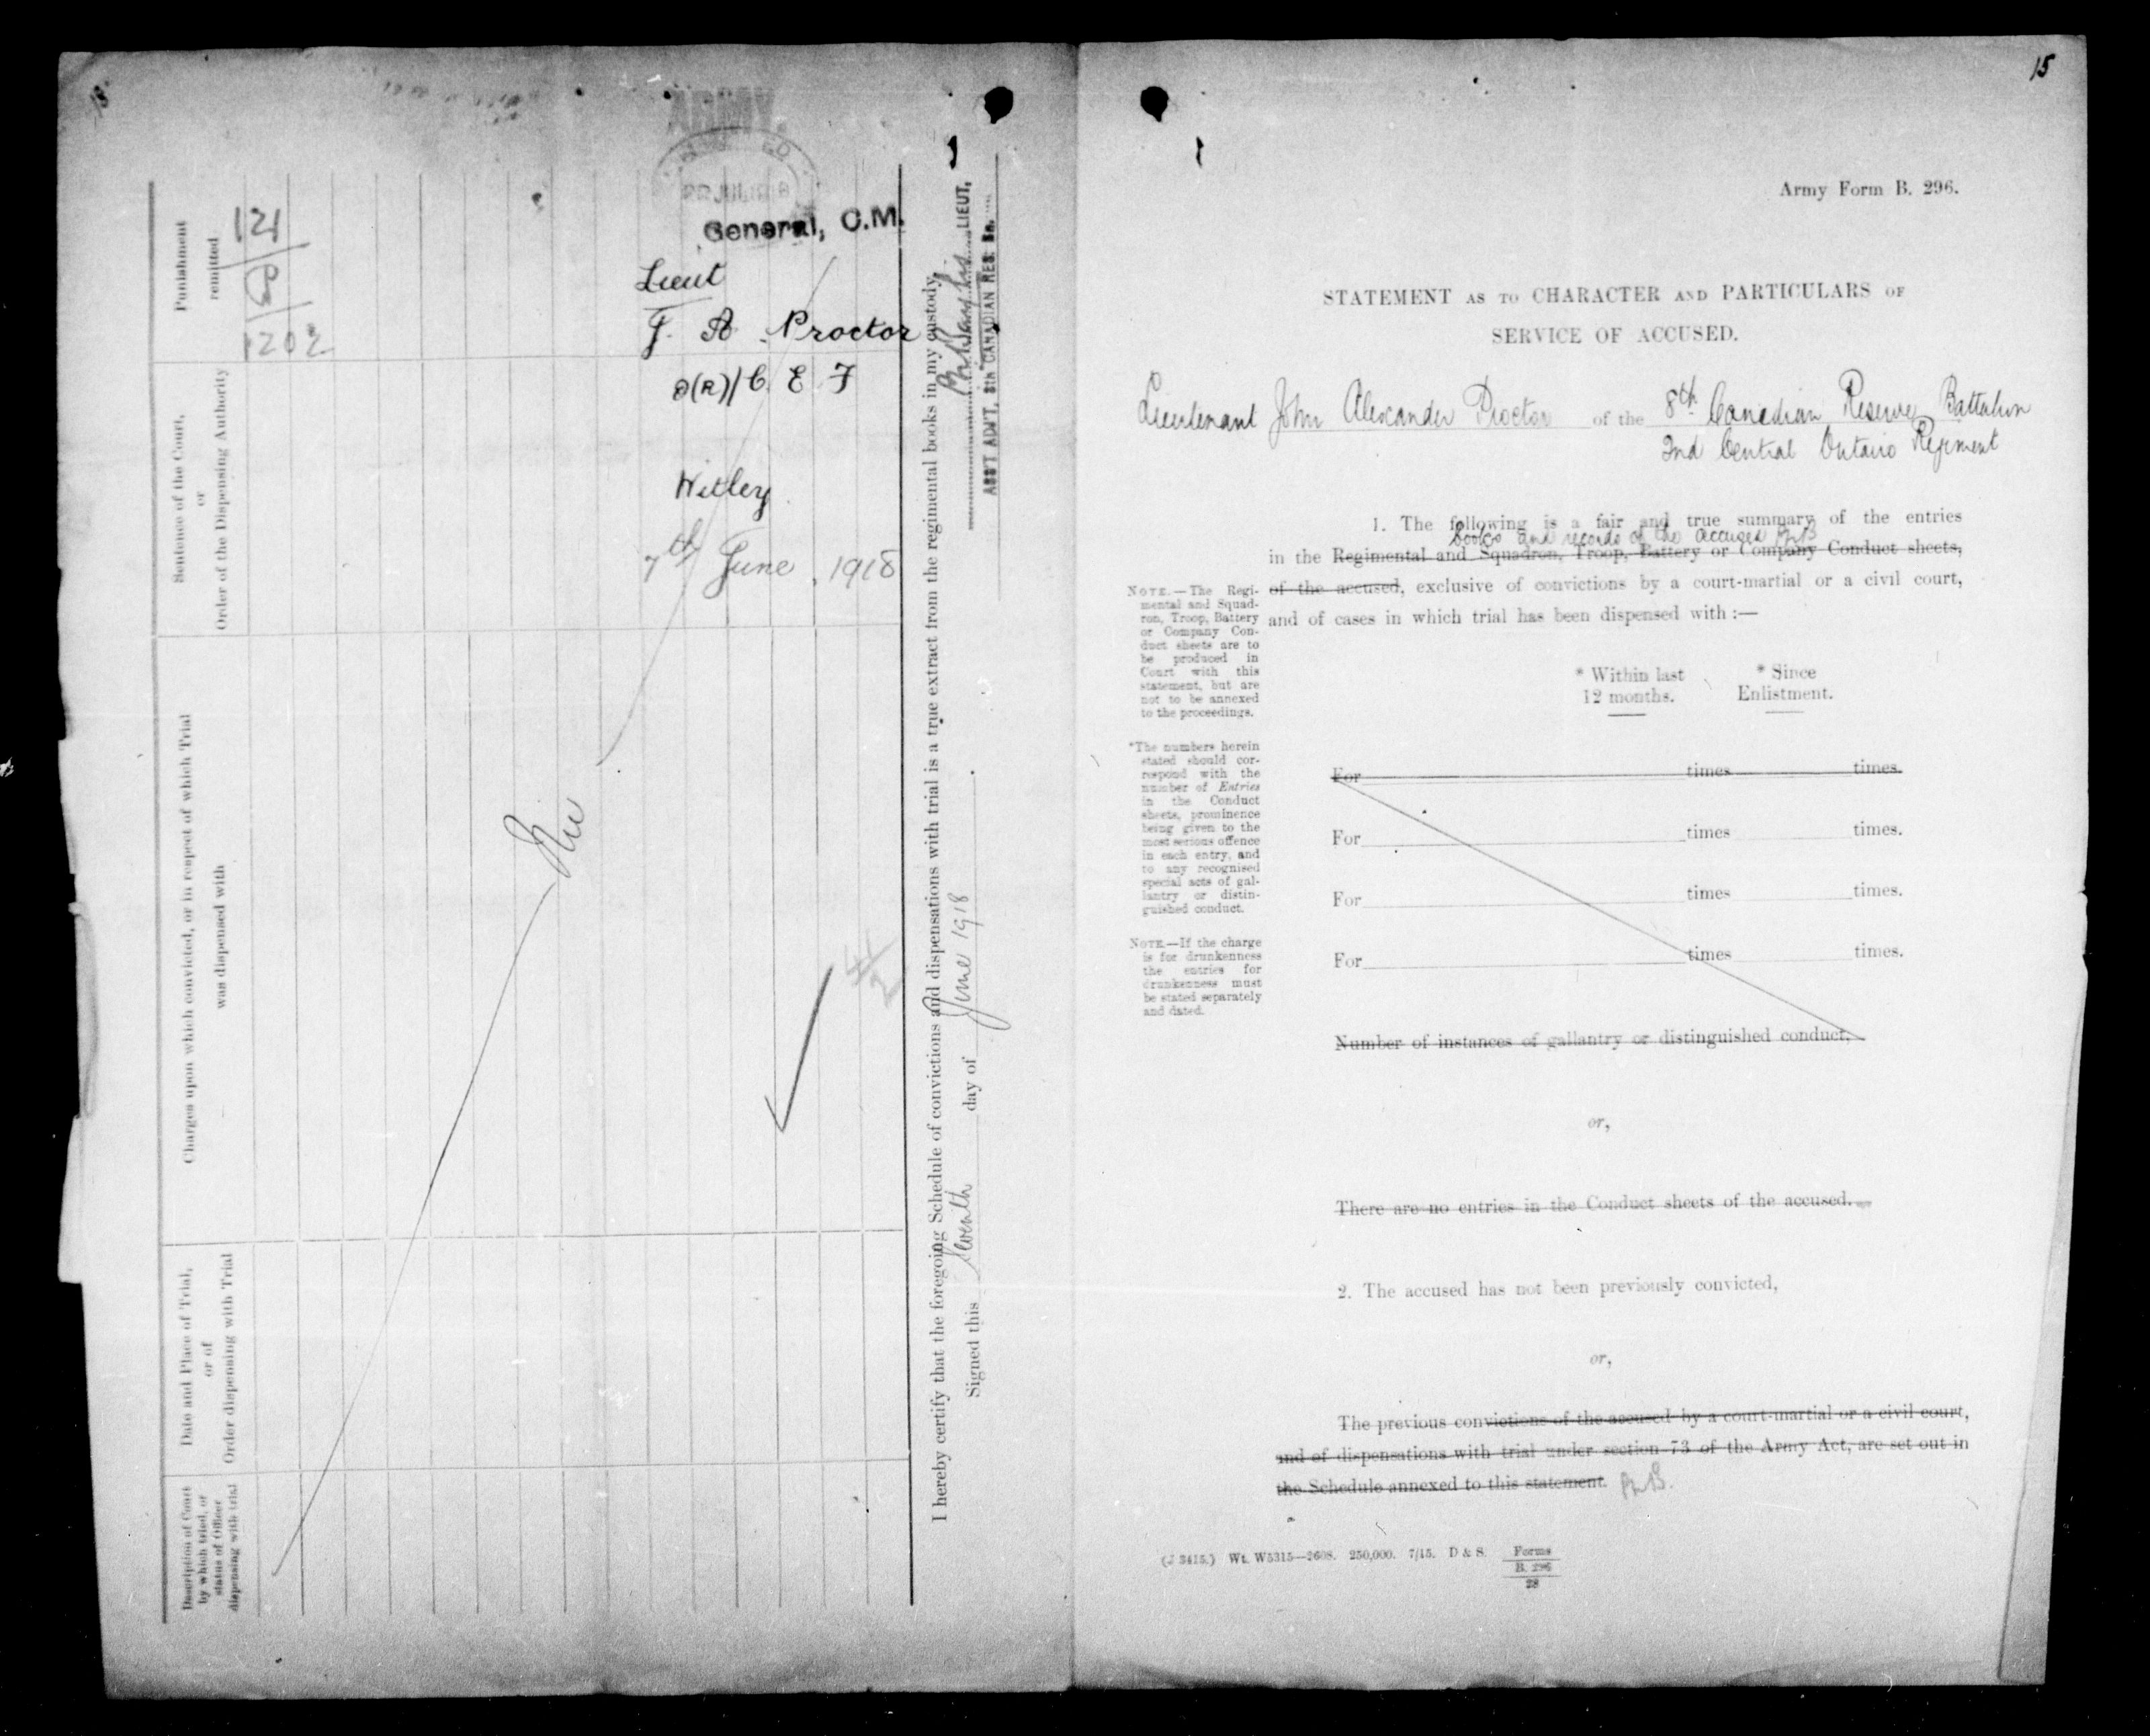 ARMY.
General, C.M.
Lieut
J. A. Proctor
C. E. F
Witley
7th June, 1918
Punishment
remitted
121
1202
Sentence of the Court,
or
Order of the Dispensing Authority
Charges upon which convicted, or in respect of which Trial
was dispensed with
Date and Place of Trial,
or of
Order dispensing with Trial
Description of Court
by which tried, or
status of Officer
dispensing with trial
I hereby certify that the foregoing Schedule of convictions and dispensations with trial is a true extract from the regimental books in my custody,
Signed this Seventh day of June 1918
LIEUT,
ASS'T ADJ'T, 8th CANADIAN RES. Bn.
15
Army Form B. 296.
STATEMENT AS TO CHARACTER AND PARTICULARS OF
SERVICE OF ACCUSED.
Lieutenant John Alexander Proctor of the 8th Canadian Reserve Battalion
2nd Central Ontario Regiment
1. The following is a fair and true summary of the entries
books and records of the accused
in the Regimental and Squadron, Troop, Battery or Company Conduct sheets,
of the accused, exclusive of convictions by a court-martial or a civil court,
and of cases in which trial has been dispensed with :—
NOTE.—The Regi-
mental and Squad-
ron, Troop, Battery
or Company Con-
duct sheets are to
be produced in
Court with this
statement, but are
not to be annexed
to the proceedings.
*The numbers herein
stated should cor-
respond with the
number of Entries
in the Conduct
sheets, prominence
being given to the
most serious offence
in each entry, and
to any recognised
special acts of gal-
lantry or distin-
guished conduct.
NOTE.—If the charge
is for drunkenness
the entries for
drunkenness must
be stated separately
and dated.
* Within last
12 months.
* Since
Enlistment.
For times times.
For times times.
For times times.
For times times.
Number of instances of gallantry or distinguished conduct,
or,
There are no entries in the Conduct sheets of the accused.
2. The accused has not been previously convicted,
or,
The previous convictions of the accused by a court-martial or a civil court,
and of dispensations with trial under section 73 of the Army Act, are set out in
the Schedule annexed to this statement.
(J 3415.) Wt. W5315—2608. 250,000. 7/15. D & S. Forms
B. 296
28